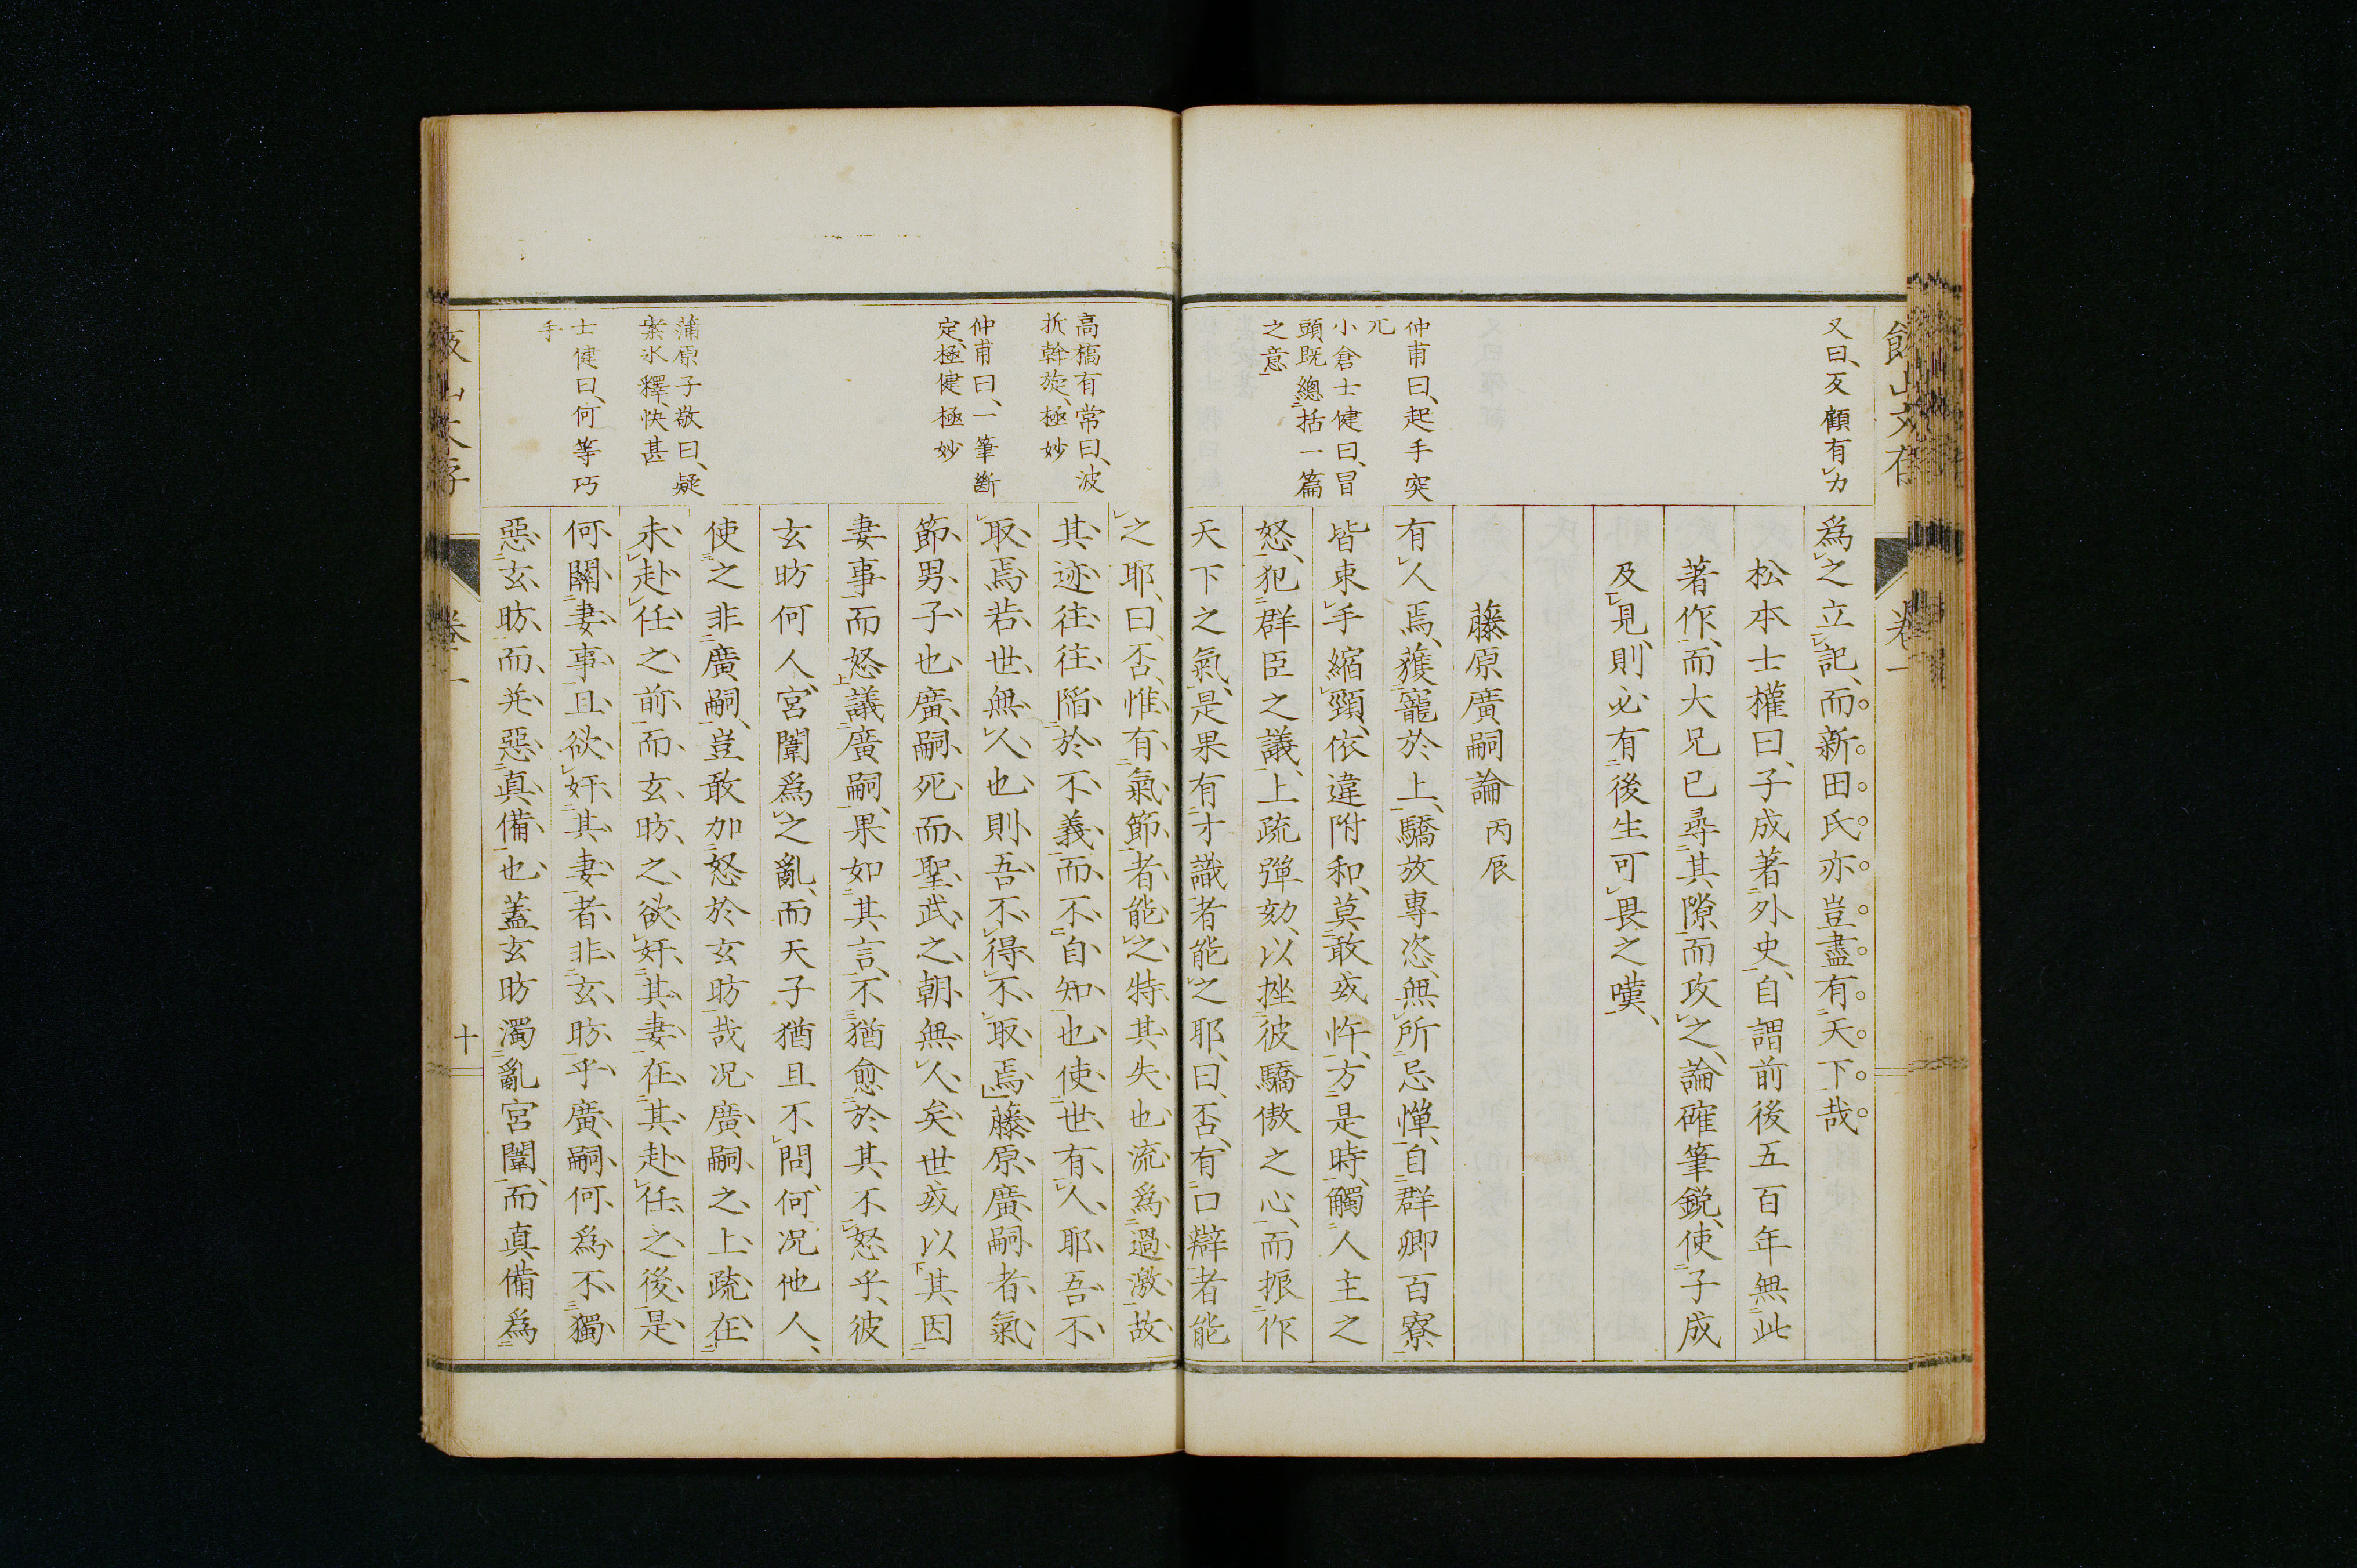 又曰、反顧有力
爲之立記、而新田氏亦豈盡有天下哉
松本士權曰、子成著外史、自謂前後五百年無此
著作、而大兄已尋其隙而攻之、論確筆鋭、使子成
及見、則必有後生可畏之嘆、
藤原廣嗣論 丙辰
仲甫曰、起手突
兀
小倉士健曰、冒
頭既總括一篇
之意
有人焉、獲寵於上、驕放專恣、無所忌憚、自群卿百寮
皆束手縮頸、依違附和、莫敢或忤、方是時、觸人主之
怒、犯群臣之議、上疏彈劾、以挫彼驕傲之心、而振作
天下之氣、是果有才識者能之耶、曰、否、有口辯者能
高橋有常曰、波
折幹旋、極妙
仲甫曰、一筆斷
定、極健極妙
蒲原子敬曰、疑
案氷釋、快甚
士健曰、何等巧
手
之耶、曰、否、惟有氣節者能之、特其失也流爲過激、故
其迹往往陷於不義、而不自知也、使世有人耶、吾不
取焉、若世無人也、則吾不得不取焉、藤原廣嗣者、氣
節男子也、廣嗣死而聖武之朝無人矣、世或以其因
妻事而怒議廣嗣、果如其言、不猶愈於其不怒乎、彼
玄昉何人、宮闈爲之亂、而天子猶且不問、何況他人、
使之非廣嗣、豈敢加怒於玄昉哉、況廣嗣之上疏、在
未赴任之前、而玄昉之欲奸其妻、在其赴任之後、是
何關妻事、且欲奸其妻者、非玄昉乎、廣嗣何爲不獨
惡玄昉、而并惡真備也、蓋玄昉濁亂宮闈、而真備爲
卷一
十